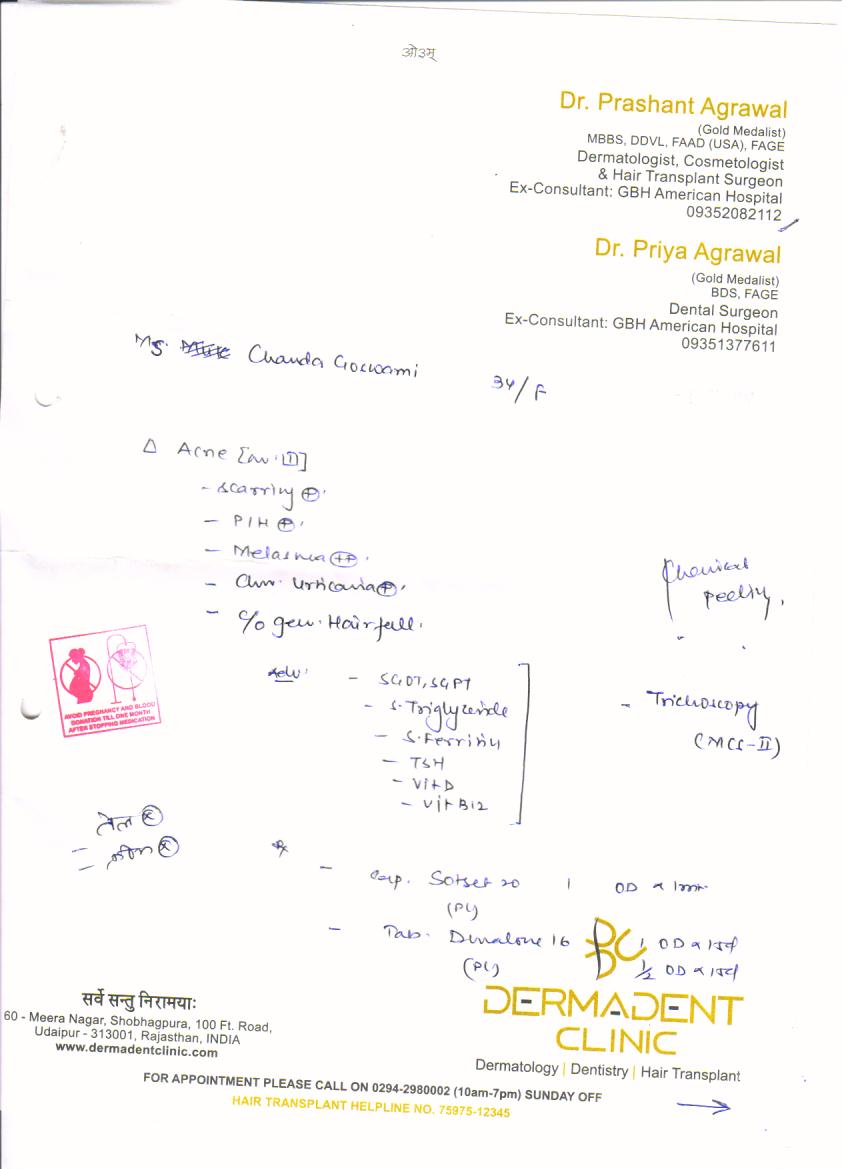 ओ३म्
Dr. Prashant Agrawal
(Gold Medalist)
MBBS, DDVL, FAAD (USA), FAGE
Dermatologist, Cosmetologist
& Hair Transplant Surgeon
Ex-Consultant: GBH American Hospital
09352082112
Dr. Priya Agrawal
(Gold Medalist)
BDS, FAGE
Dental Surgeon
Ex-Consultant: GBH American Hospital
09351377611
Ms. Chanda Goswami
34/F
Δ Acne [Gr. II]
- Scarring ⊕
- PIH ⊕
- Melasma (++)
- Chr. Urticaria ⊕
- C/o gen. Hairfall.
Chemical
peeling,
Adv:
- SGOT, SGPT
- S. Triglyceride
- S. Ferritin
- TSH
- Vit D
- Vit B12
- Trichoscopy
AVOID PREGNANCY AND BLOOD
DONATION TILL ONE MONTH
AFTER STOPPING MEDICATION
तेल ⓧ
- क्रीम ⓧ
Rx
- Cap. Sotret 20 1 OD
- Tab. 16 1 OD
1/2 OD
सर्वे सन्तु निरामयाः
60 - Meera Nagar, Shobhagpura, 100 Ft. Road,
Udaipur - 313001, Rajasthan, INDIA
www.dermadentclinic.com
DERMADENT
CLINIC
Dermatology | Dentistry | Hair Transplant
FOR APPOINTMENT PLEASE CALL ON 0294-2980002 (10am-7pm) SUNDAY OFF
HAIR TRANSPLANT HELPLINE NO. 75975-12345